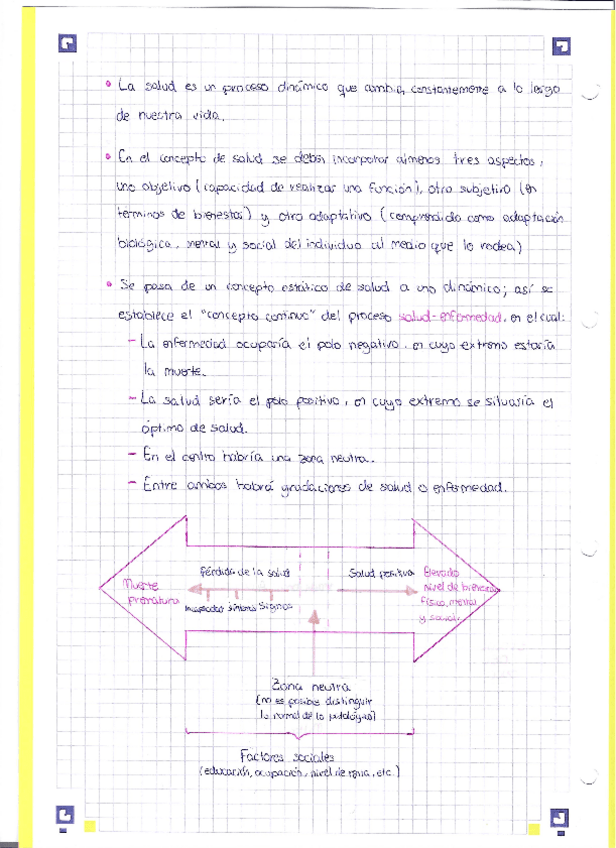 • La salud es un proceso dinámico que cambia constantemente a lo largo
de nuestra vida.
• En el concepto de salud se deben incorporar almenos tres aspectos,
uno objetivo (capacidad de realizar una función), otro subjetivo (en
terminos de bienestar) y otro adaptativo (comprendido como adaptación
biológica, mental y social del individuo al medio que lo rodea)
• Se pasa de un concepto estático de salud a uno dinámico; así se
establece el "concepto continuo" del proceso salud-enfermedad, en el cual:
- La enfermedad ocuparía el polo negativo, en cuyo extremo estaría
la muerte.
- La salud sería el polo positivo, en cuyo extremo se situaría el
óptimo de salud.
- En el centro habría una zona neutra.
- Entre ambos habrá gradaciones de salud o enfermedad.
Pérdida de la salud
Salud positiva
Muerte
prematura
síntomas signos
Elevado
nivel de bienestar
físico, mental
y social
Zona neutra
(no es posible distinguir
lo normal de lo patológico)
Factores sociales
(educación, ocupación, nivel de renta, etc.)